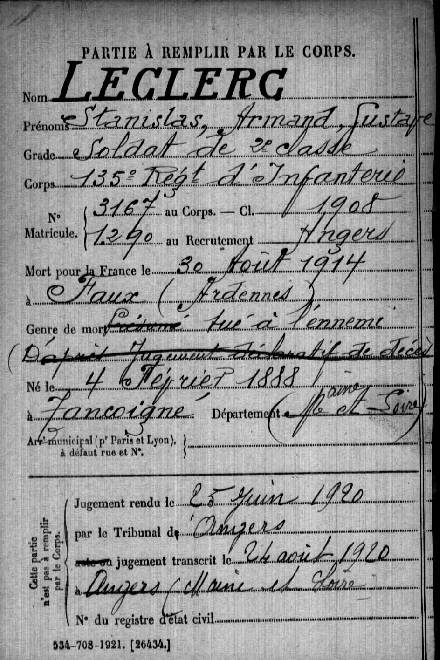 PARTIE À REMPLIR PAR LE CORPS.
Nom LECLERC
Prénoms Stanislas, Armand, Gustave
Grade Soldat de 2e classe
Corps 135e Régt d'Infanterie
N° Matricule. { 3167 au Corps. — Cl. 1908
1290 au Recrutement Angers
Mort pour la France le 30 Août 1914
à Faux (Ardennes)
Genre de mort Présumé tué à l'ennemi
(D'après Jugement déclaratif de décès)
Né le 4 Février 1888
à Tancoigné Département (Maine et Loire)
Arrt municipal (pr Paris et Lyon),
à défaut rue et N°.
Cette partie
n'est pas à remplir
par le Corps.
Jugement rendu le 25 Juin 1920
par le Tribunal de Angers
acte ou jugement transcrit le 24 août 1920
à Angers (Maine et Loire
N° du registre d'état civil
534-708-1921. [26434.]